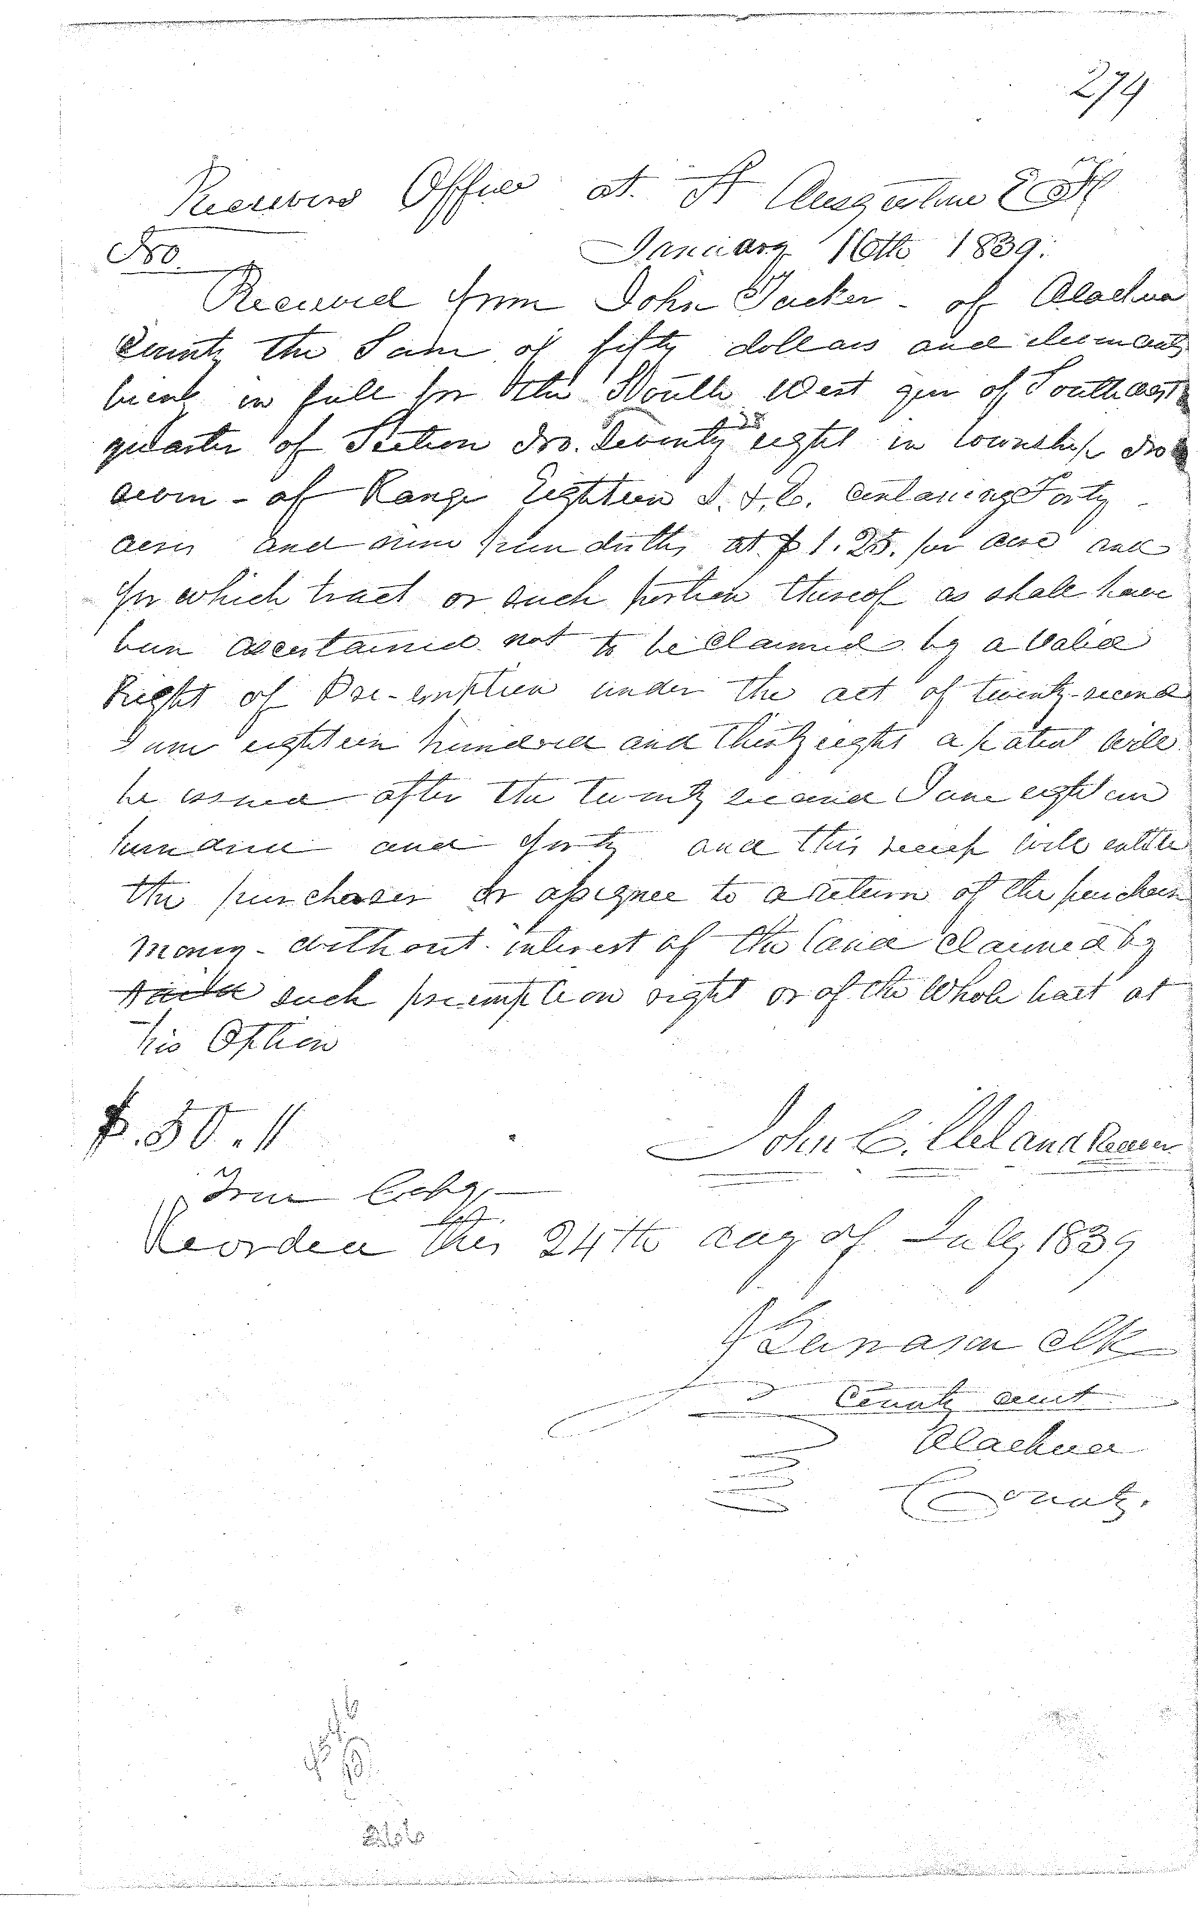 274
Receivers Office at St Augustine E F
No. January 16th 1839.
Received from John Tucker - of Alachua
County the Sum of fifty dollars and eleven cents
being in full for the South West qur of South east
quarter of Section No. Twenty eight 28 in township No
seven - of Range Eighteen S. & E. containing Forty
acres and nine hundredths at $1.25. per acre and
for which tract or such portion thereof as shall have
been ascertained not to be claimed by a valid
Right of Pre-emption under the act of twenty-second
June eighteen hundred and thirty eight a patent will
be issued after the twenty second June eighteen
hundred and forty and this receipt will entitle
the purchaser or assignee to a return of the purchase
money - without interest of the land claimed by
said such preemption right or of the whole tract at
his Option
$.50.11 John C. Cleland Receiver
True Copy,
Recorded this 24th day of July, 1839
Clk
County Court
Alachua
County.
266